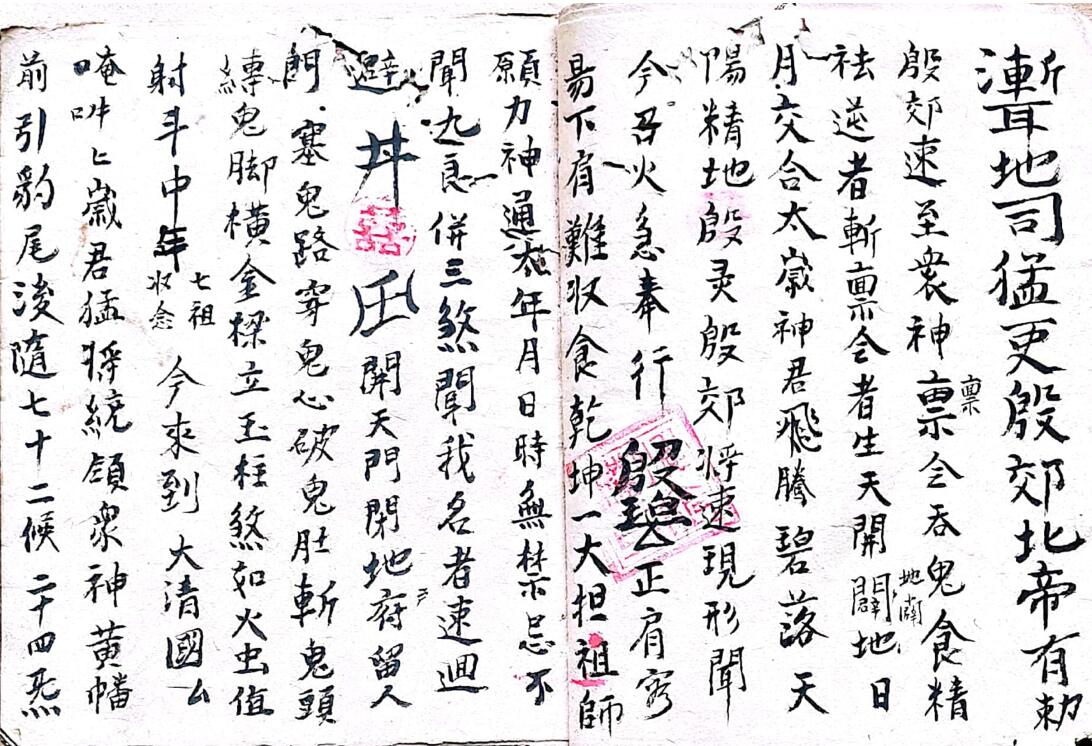 地司猛吏殷郊北帝有勅
殷郊速至衆神禀令吞鬼食精
禀
祛逆者斬禀令者生天開闢地日
地闢
月交合太歲神君飛騰碧落天
陽精地殷灵殷郊将速現形聞
今召火急奉行 正肩客
易下肩難收食乾坤一大担祖師
願力神通太年月日時無禁忌不
聞九良併三煞聞我名者速迴
避 開天門閉地府留人
門塞鬼路穿鬼心破鬼肚斬鬼頭
縳鬼脚橫金樑立玉柱煞如火虫值
射斗中年 今來到大清國厶
七祖
收念
唵吽匕歲君猛将統領衆神黃幡
前引豹尾後隨七十二候二十四炁